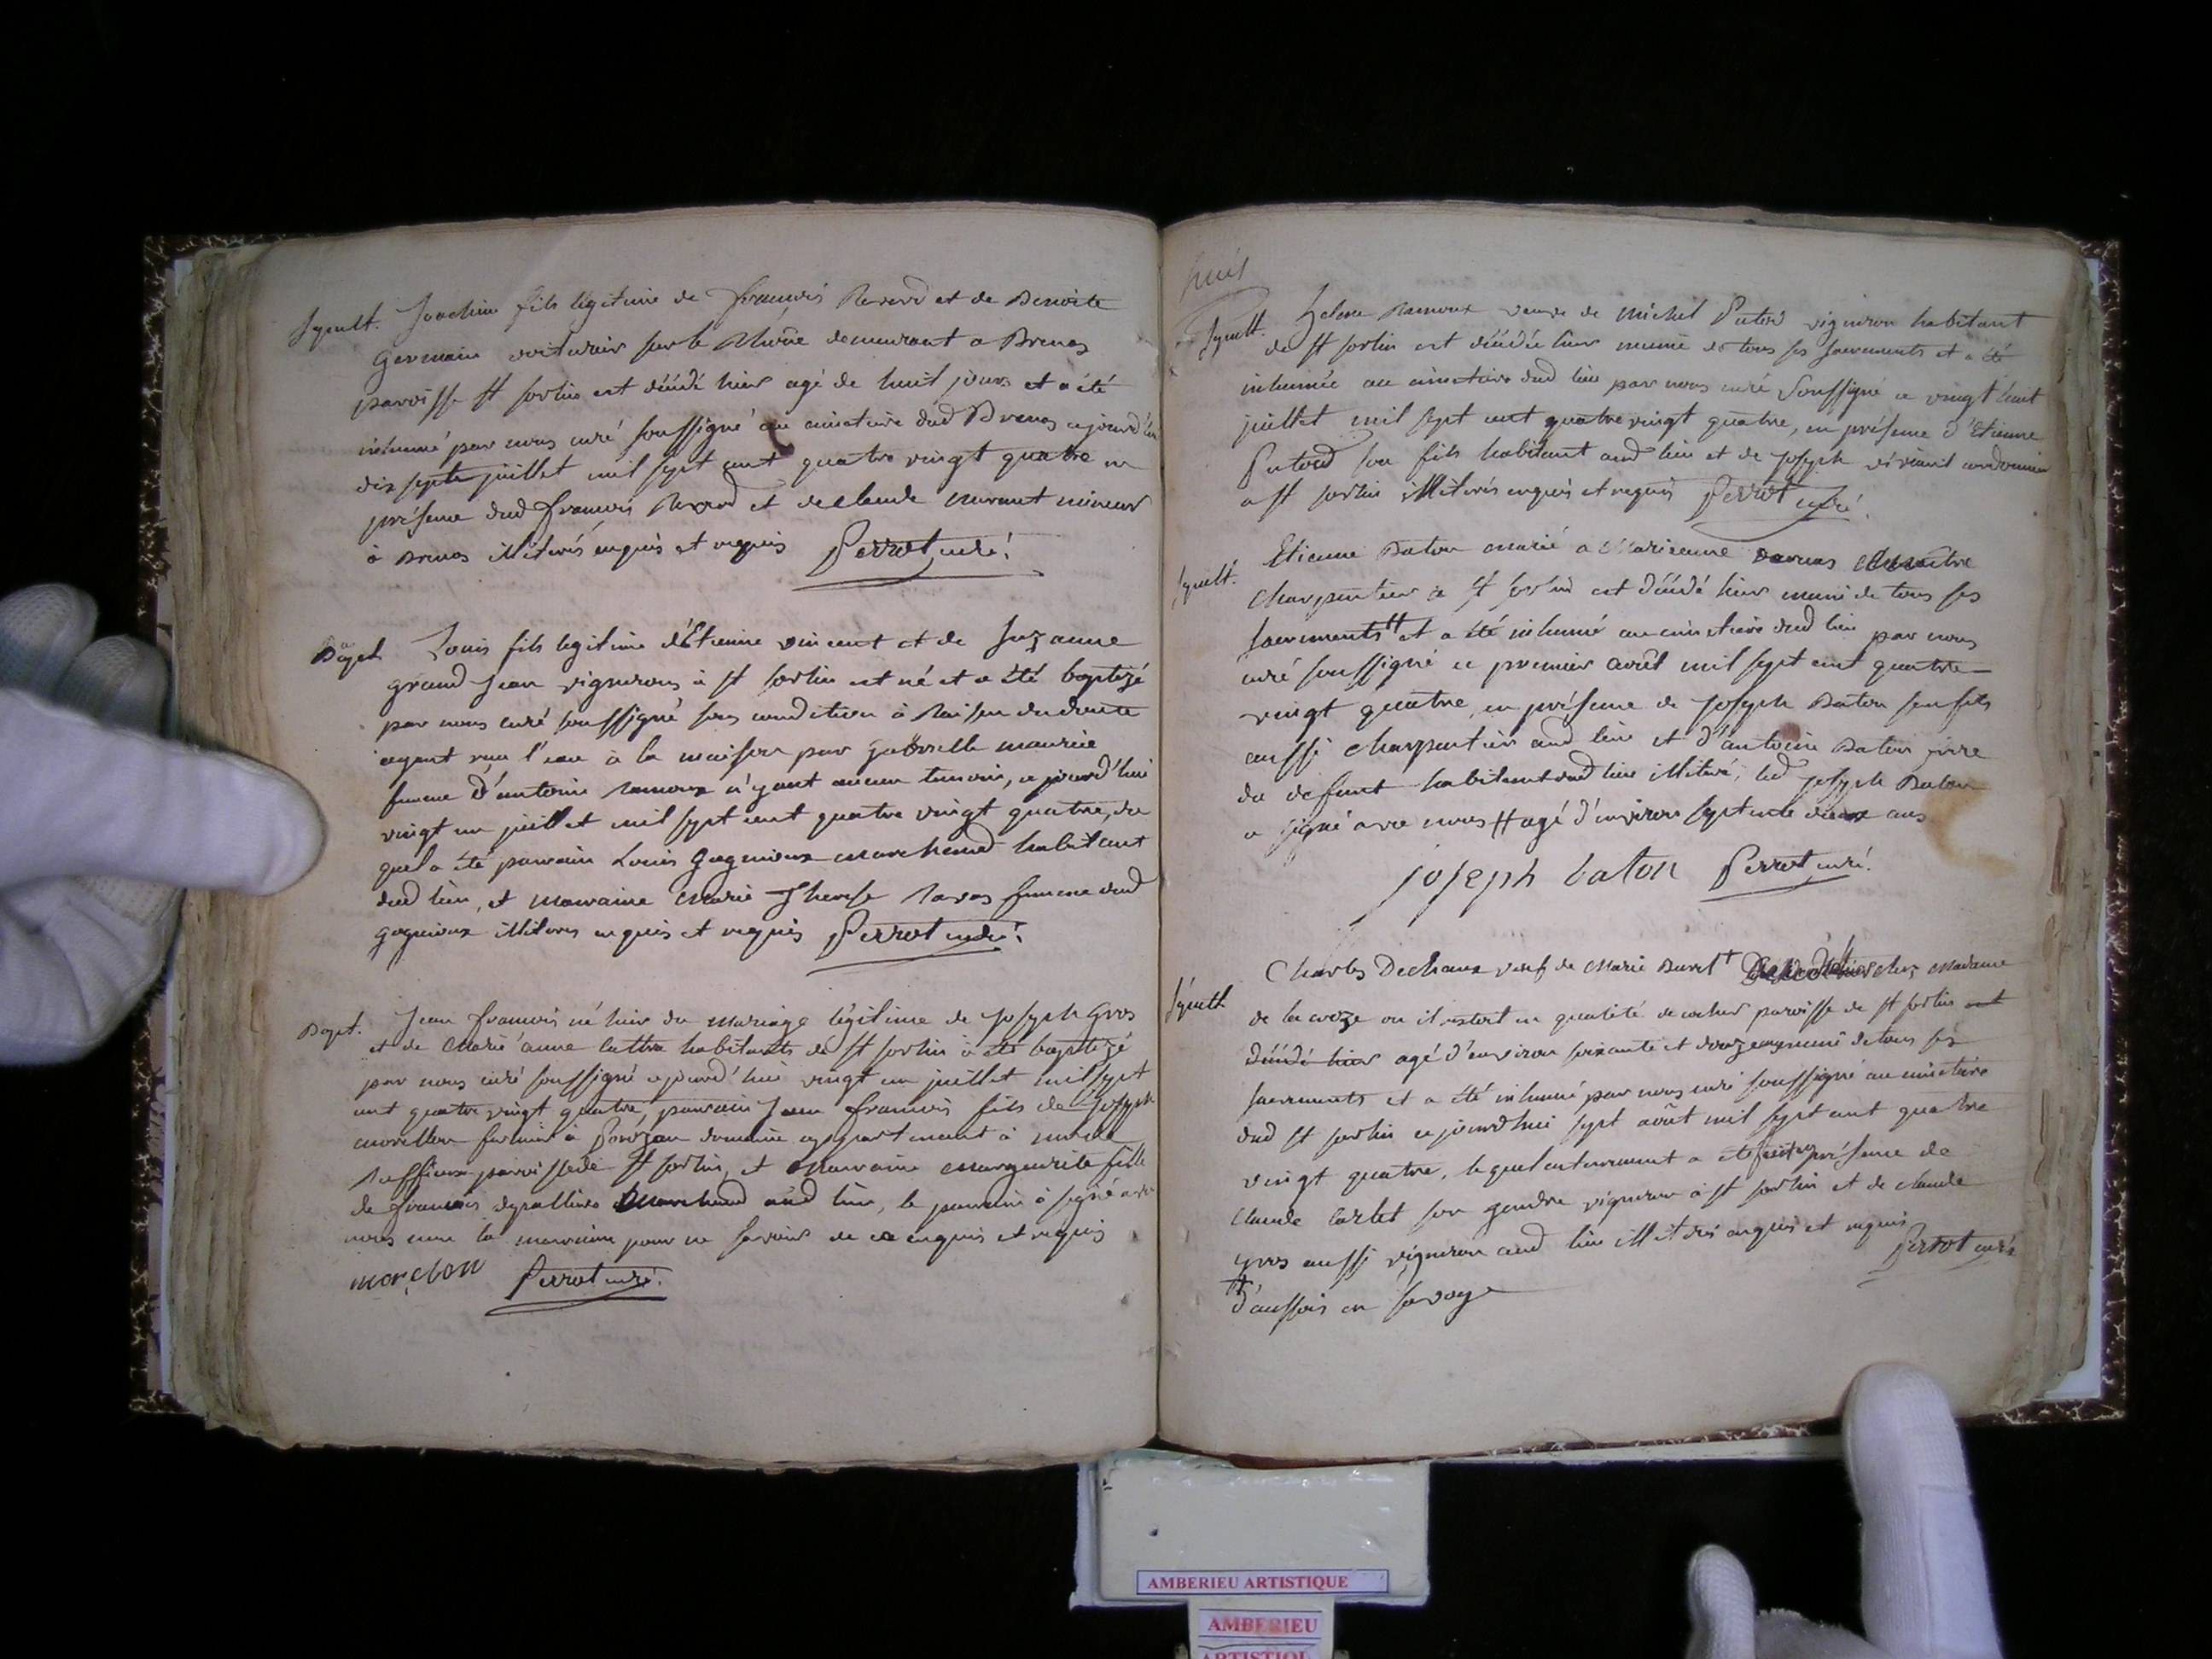 Sepult. Joachim fils légitime de françois Revord et de Benoite
Germain voiturier sur le Rhône demeurant a Brenas
paroisse st sorlin est décédé hier agé de huit jours et a été
inhumé par nous curé soussigné au cimetiere dud Brenas cejourd'hui
dix sept juillet mil sept cent quatre vingt quatre en
présence dud françois Revord et de claude
à Brenas illiterés enquis et requis Perrot curé.
Bapt. Louis fils legitime d'Etienne vincent et de Suzanne
grand Jean vignerons à st sorlin est né et a été baptizé
par nous curé soussigné sous condition à Raison du doute
ayant reçu l'eau à la maison par
femme d'antoine Ramoux n'ÿant aucun temoin, cejourd'hui
vingt un juillet mil sept cent quatre vingt quatre, du
quel a été parrain Louis Gagnieux marchand habitant
dud lieu, et marraine Marie Therese Ravas femme dud
gagnieux illiteres enquis et requis Perrot curé.
Bapt. Jean françois né hier du mariage légitime de Joseph Gros
et de Marie anne habitants de st sorlin a été baptizé
par nous curé soussigné cejourd'hui vingt un juillet mil sept
cent quatre vingt quatre, parrain Jean françois fils de Joseph
fermier à domaine appartenant à
paroisse de st sorlin, et marraine Marguerite fille
de françois marchand aud lieu, le parrain à signé avec
nous non la marraine pour ne savoir de ce enquis et requis
Perrot curé.
huit
Sepult. Helene Ramoux veuve de Michel Putod vigneron habitant
de st sorlin est décédée hier munie de tous ses sacrements et a été
inhumée au cimetiere dud lieu par nous curé Soussigné ce vingt huit
juillet mil sept cent quatre vingt quatre, en présence d'Etienne
Putod son fils habitant aud lieu et de Joseph cordonnier
a st sorlin illiterés enquis et requis Perrot curé.
Sepult. Etienne Baton marié a Marieanne maitre
Charpentier a st sorlin est décédé hier muni de tous ses
sacrements # et a été inhumé au cimetiere dud lieu par nous
curé soussigné ce premier août mil sept cent quatre
vingt quatre, en présence de Joseph Baton son fils
aussi charpentier aud lieu et d'antoine Baton frere
du defunt habitant aud lieu illiteré; led Joseph Baton
a signé avec nous # agé d'environ septente deux ans
joseph baton Perrot curé.
Sépult. Charles Dechaux veuf de Marie Buret # chez Madame
de la croze ou il restoit en qualité de cocher paroisse de st sorlin est
décédé hier agé d'environ soixante et douze ans muni de tous ses
sacrements et a été inhumé par nous curé soussigné au cimetiere
dud st sorlin cejourdhui sept août mil sept cent quatre
vingt quatre, lequel enterrement a été fait en présence de
Claude son gendre vigneron à st sorlin et de claude
gros aussi vigneron aud lieu illiterés enquis et requis
Perrot curé
# d'aussois en savoye
AMBERIEU ARTISTIQUE
AMBERIEU
ARTISTIQU